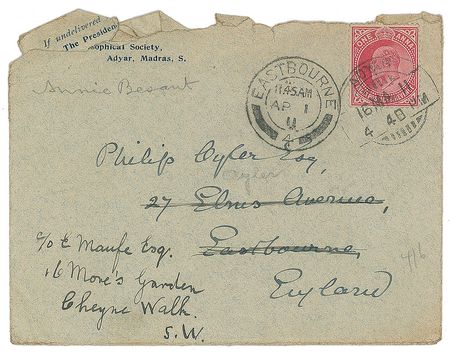 If undelivered
The Presiden
sophical Society,
Adyar, Madras, S.
Annie Besant
ONE ANNA
EASTBOURNE
11.45AM
AP 1
11
4
Philip Oyler Esq,
Oyler
27 Elms Avenue,
Eastbourne,
England
c/o E Maufe Esq.
16 More's Garden
Cheyne Walk.
S.W.
4